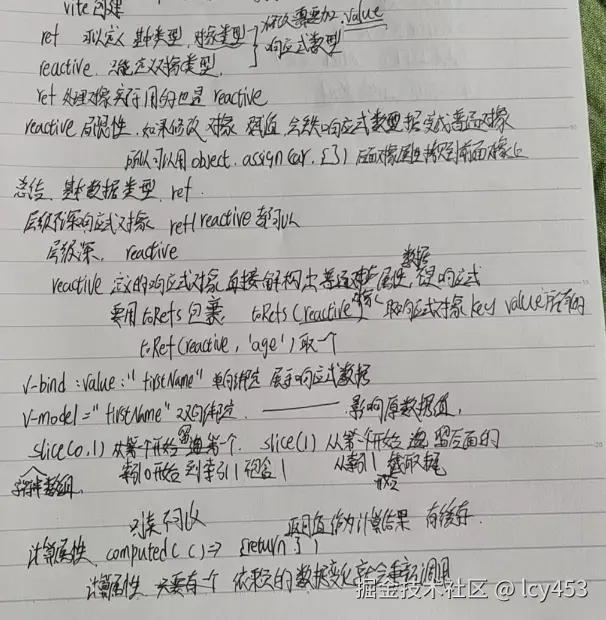 vite创建
ref 可以定义 基本类型,对象类型 修改需要加.value
reactive. 只能定义对象类型. 响应式数据
ref 处理对象实际用的也是 reactive
reactive 局限性.如果修改 对象 赋值 会缺响应式数据变成普通对象
所以可以用object.assign(car,{}) 后面对象属性拷贝到前面对象上
总结、基本数据类型,ref.
层级不深响应式对象 ref/reactive都可以
层级深, reactive
reactive 定义的响应式对象 直接解构出普通 属性,数据 响应式
要用toRefs包裹 toRefs(reactive) 取响应式对象key value所有的
toRef(reactive,'age')取一个
v-bind :value:"firstName" 单向绑定 展示响应式数据
v-model="firstName" 双向绑定. —— 影响原数据值,
slice(0,1) 从第一个开始 留第一个. slice(1) 从第一个开始 留后面的
字符串 数组. 索引0开始 到索引1 不包含1 从索引1 截取 尾
只读不收 返回值作为计算结果 有缓存.
计算属性、computed(()=> {return })
计算属性 只要有一个 依赖的数据变化就会重新调用
掘金技术社区 @ lcy453